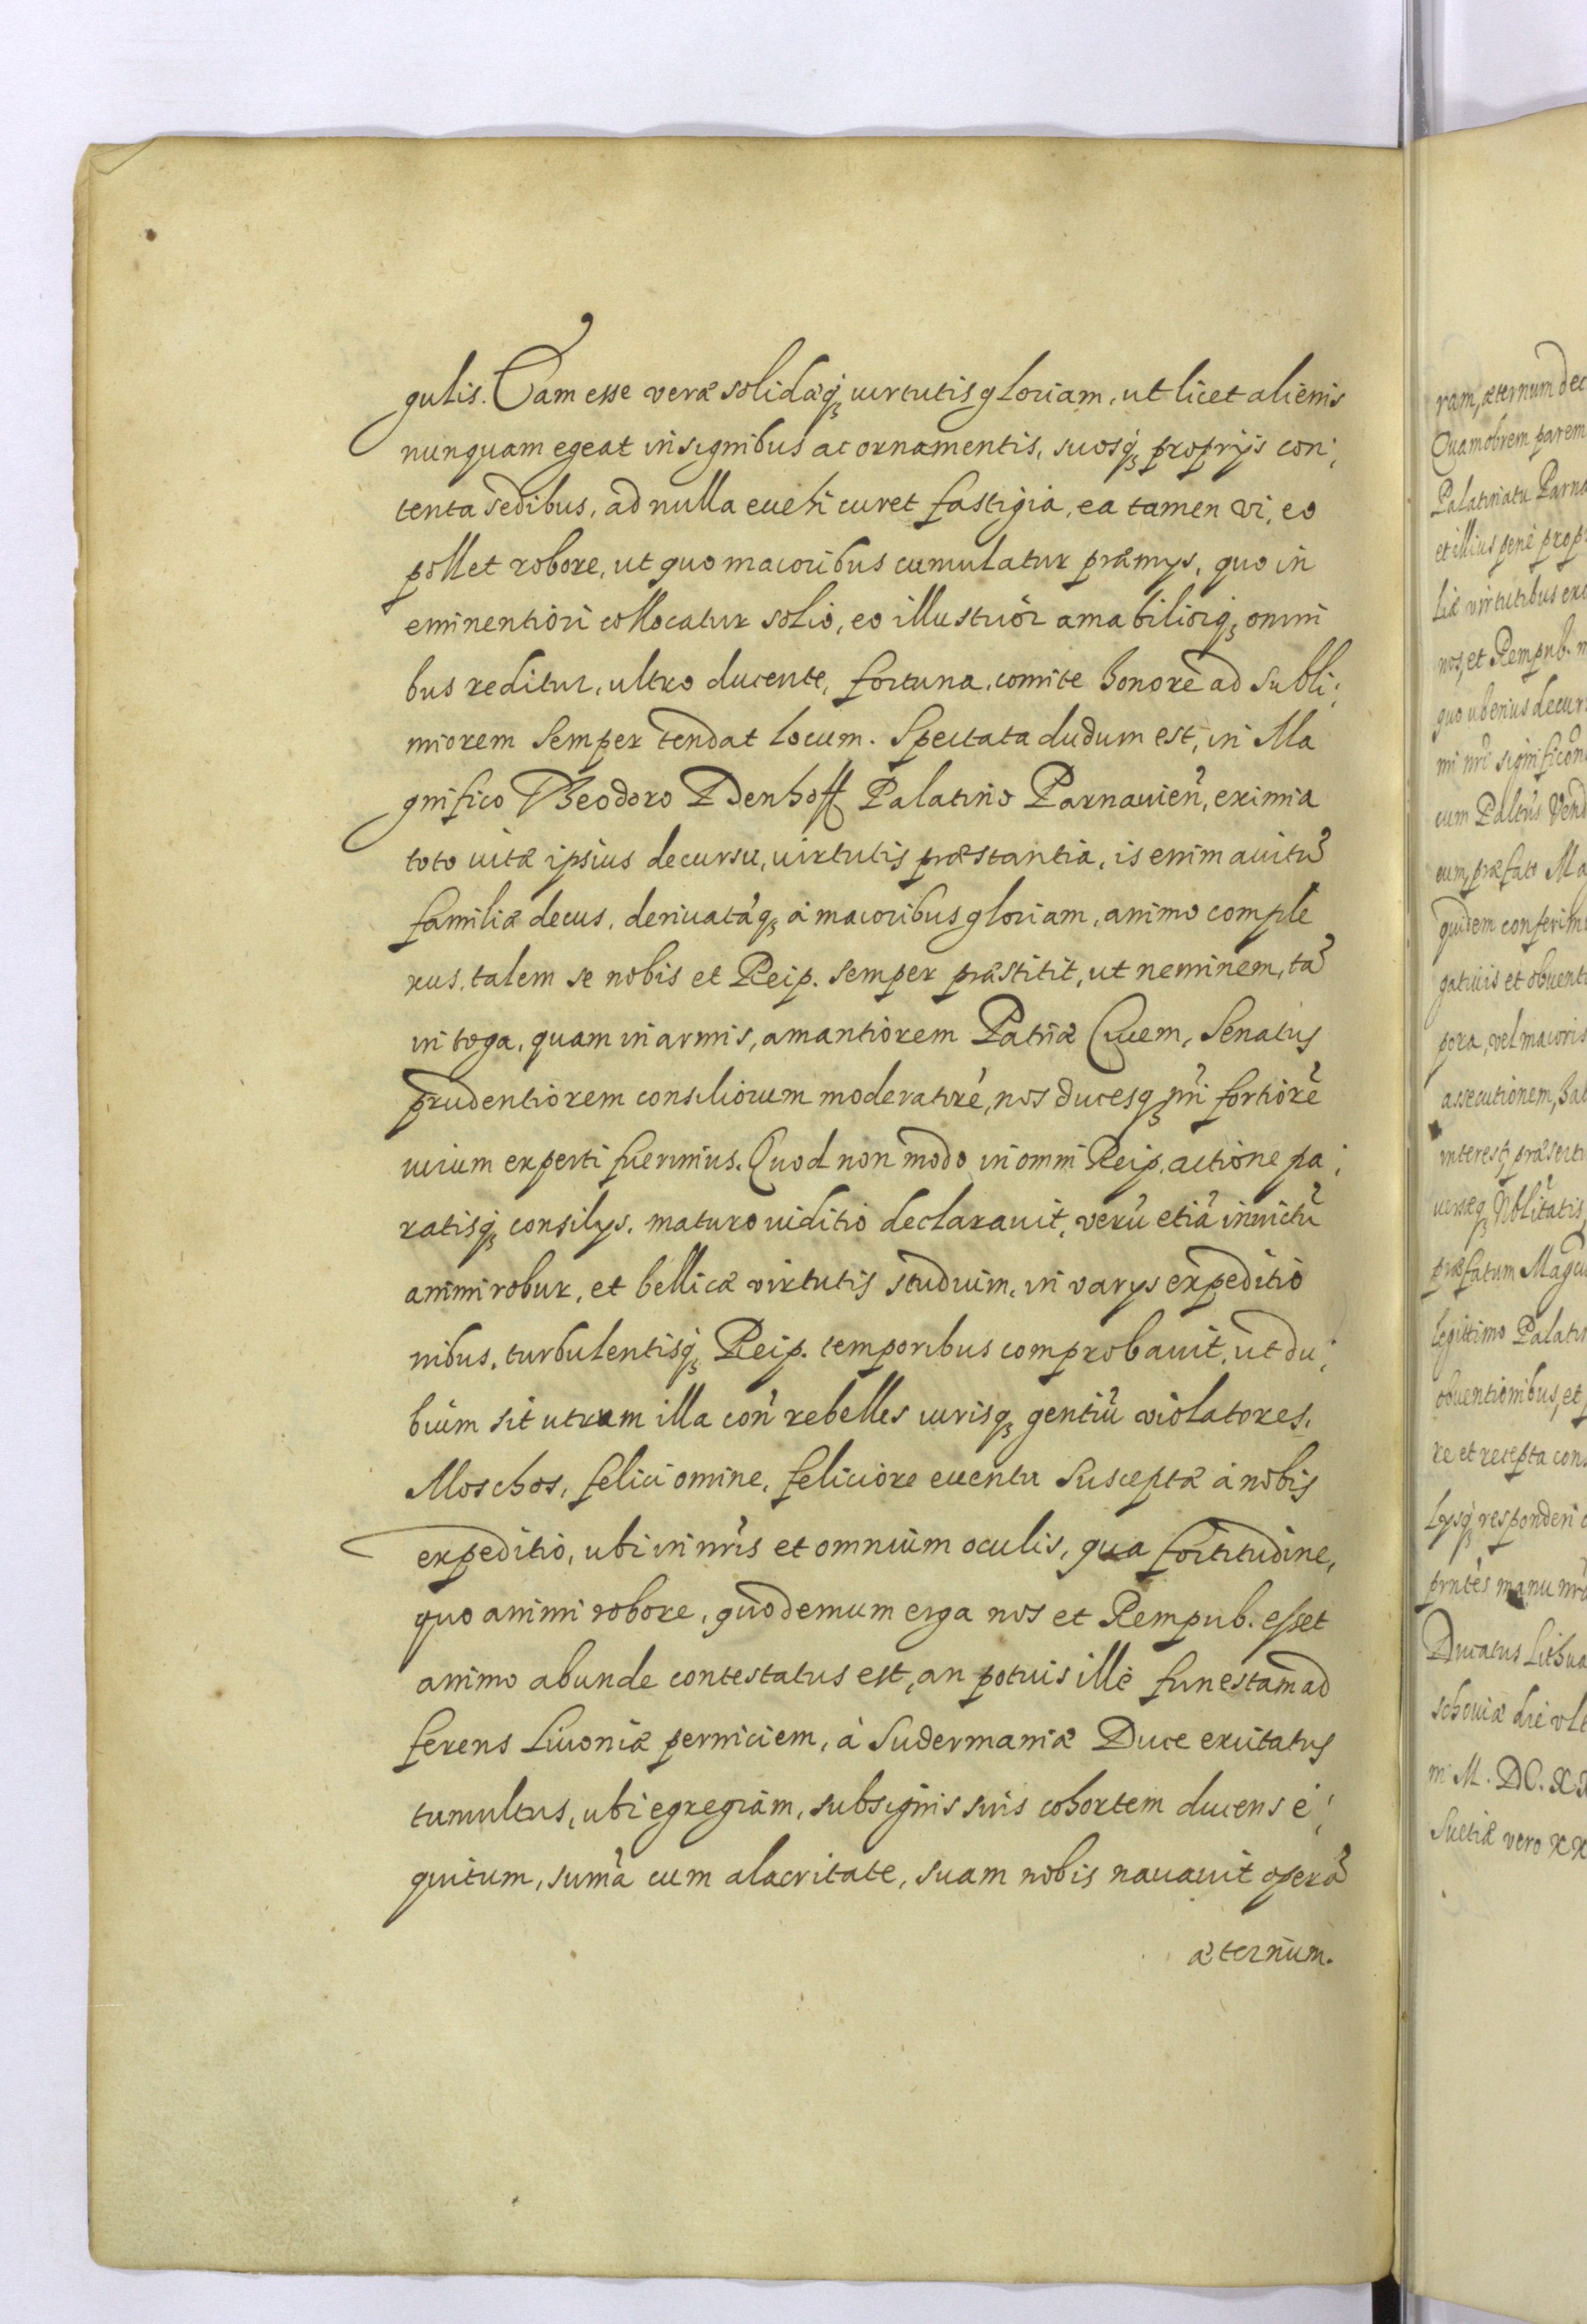 gulis. Eam esse veræ solidæq́ꝫ uirtutis gloriam, ut licet alienis
nunquam egeat insignibus ac ornamentis, suosq́ꝫ proprijs con:
tenta sedibus, ad nulla euehi curet fastigia, ea tamen vi, eo
pollet robore, ut quo maioribus cumulatur præmijs, quo in
eminentiori collocatur solio, eo illustrior amabiliorq́ꝫ omni
bus reditur, ultro ducente, fortuna, comite honore ad subli:
miorem semper tendat locum. Spectata dudum est, in Ma
gnifico Theodoro Denhoff Palatino Parnauień, eximia
toto uitæ ipsius decursu, uirtutis præstantia, is enim auitũ
familiæ decus, deriuatáq́ꝫ à maioribus gloriam, animo comple
xus, talem se nobis et Reip. semper præstitit, ut neminem, tã
in toga, quam in armis, amantiorem Patriæ Ciuem, Senatus
prudentiorem consiliorum moderatorẽ, nos ducesq́ꝫ nr̃i fortiorẽ
uirum experti fuerimus. Quod non modo in omni Reip. actione pa:
ratisq́ꝫ consilijs, maturo iuditio declarauit, verũ etiã inuictũ
animi robur, et bellicæ virtutis studium, in varijs expeditio
nibus, turbulentisq́ꝫ Reip. temporibus comprobauit, ut du:
bium sit utrum illa coñ rebelles iurisq́ꝫ gentiũ violatores,
Moschos, felici omine, feliciore euentu suscepta à nobis
expeditio, ubi in nr̃is et omnium oculis, qua fortitudine,
quo animi robore, quo demum erga nos et Rempub. esset
animo abunde contestatus est, an potius ille funestam ad
ferens Liuoniæ perniciem, à Sudermaniæ Duce excitatus
tumultus, ubi egregiam, sub signis suis cohortem ducens e:
quitum, sum̃a cum alacritate, suam nobis nauauit operã
æternum.
ram, æternum dec
Quamobrem parem
Palatinatu Parna
et illius penè propr
liæ virtutibus exc
nos, et Rempub. n
quo uberius decur
mi nr̃i significõn
cum Paltũs Vend
cum, præfato Ma
quidem conferim
gatiuis et obuenti
pora, vel maioris
assecutionem, hab
interest, præserti
uersæq́ꝫ Nblĩtatis
præfatum Magcũ
legittimo Palatin
obuentionibus, et p
re et recepta cons
lysq́ꝫ responderi c
prntẽs manu nrã
Ducatus Lithua
schouiæ die vlt
ni M. DC. XX
Suetiæ vero XX